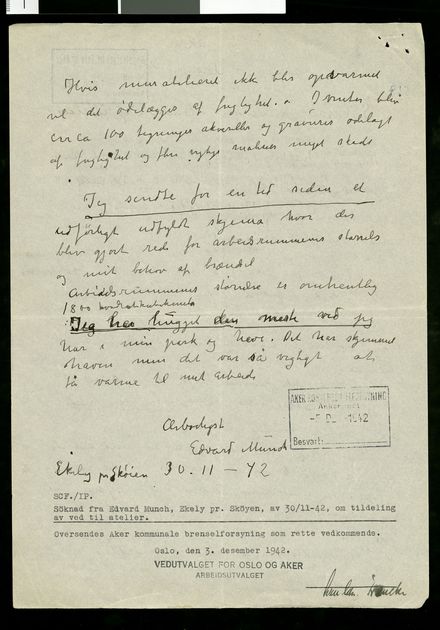 Hvis muratelieret ikke blir opvarmet
vil det ødelægges af fugtighet. I vinter blev
circa 100 tegninger akvareller og gravures ødelagt
af fugtighet og flere vigtige malerier meget skadt
Jeg sendte for en tid siden et
udførligt udfyldt skjema hvor der
blev gjort rede for arbeidsrummenes størrelse
og mit behov af brændsel
Arbeidsrummenes størrelse er omtrentlig
1800
Jeg har hugget den meste ved jeg
har i min park og have. Det har skjæmmet
haven men det var så vigtigt at
få varme til mit arbeide
Ærbødigst
Edvard Munch
Ekely pr Skøien 30.11 – 42
AKER
1942
Besvart:
SCF./IP.
Söknad fra Edvard Munch, Ekely pr. Sköyen, av 30/11-42, om tildeling
av ved til atelier.
Oversendes Aker kommunale brenselforsyning som rette vedkommende.
Oslo, den 3. desember 1942.
VEDUTVALGET FOR OSLO OG AKER
ARBEIDSUTVALGET